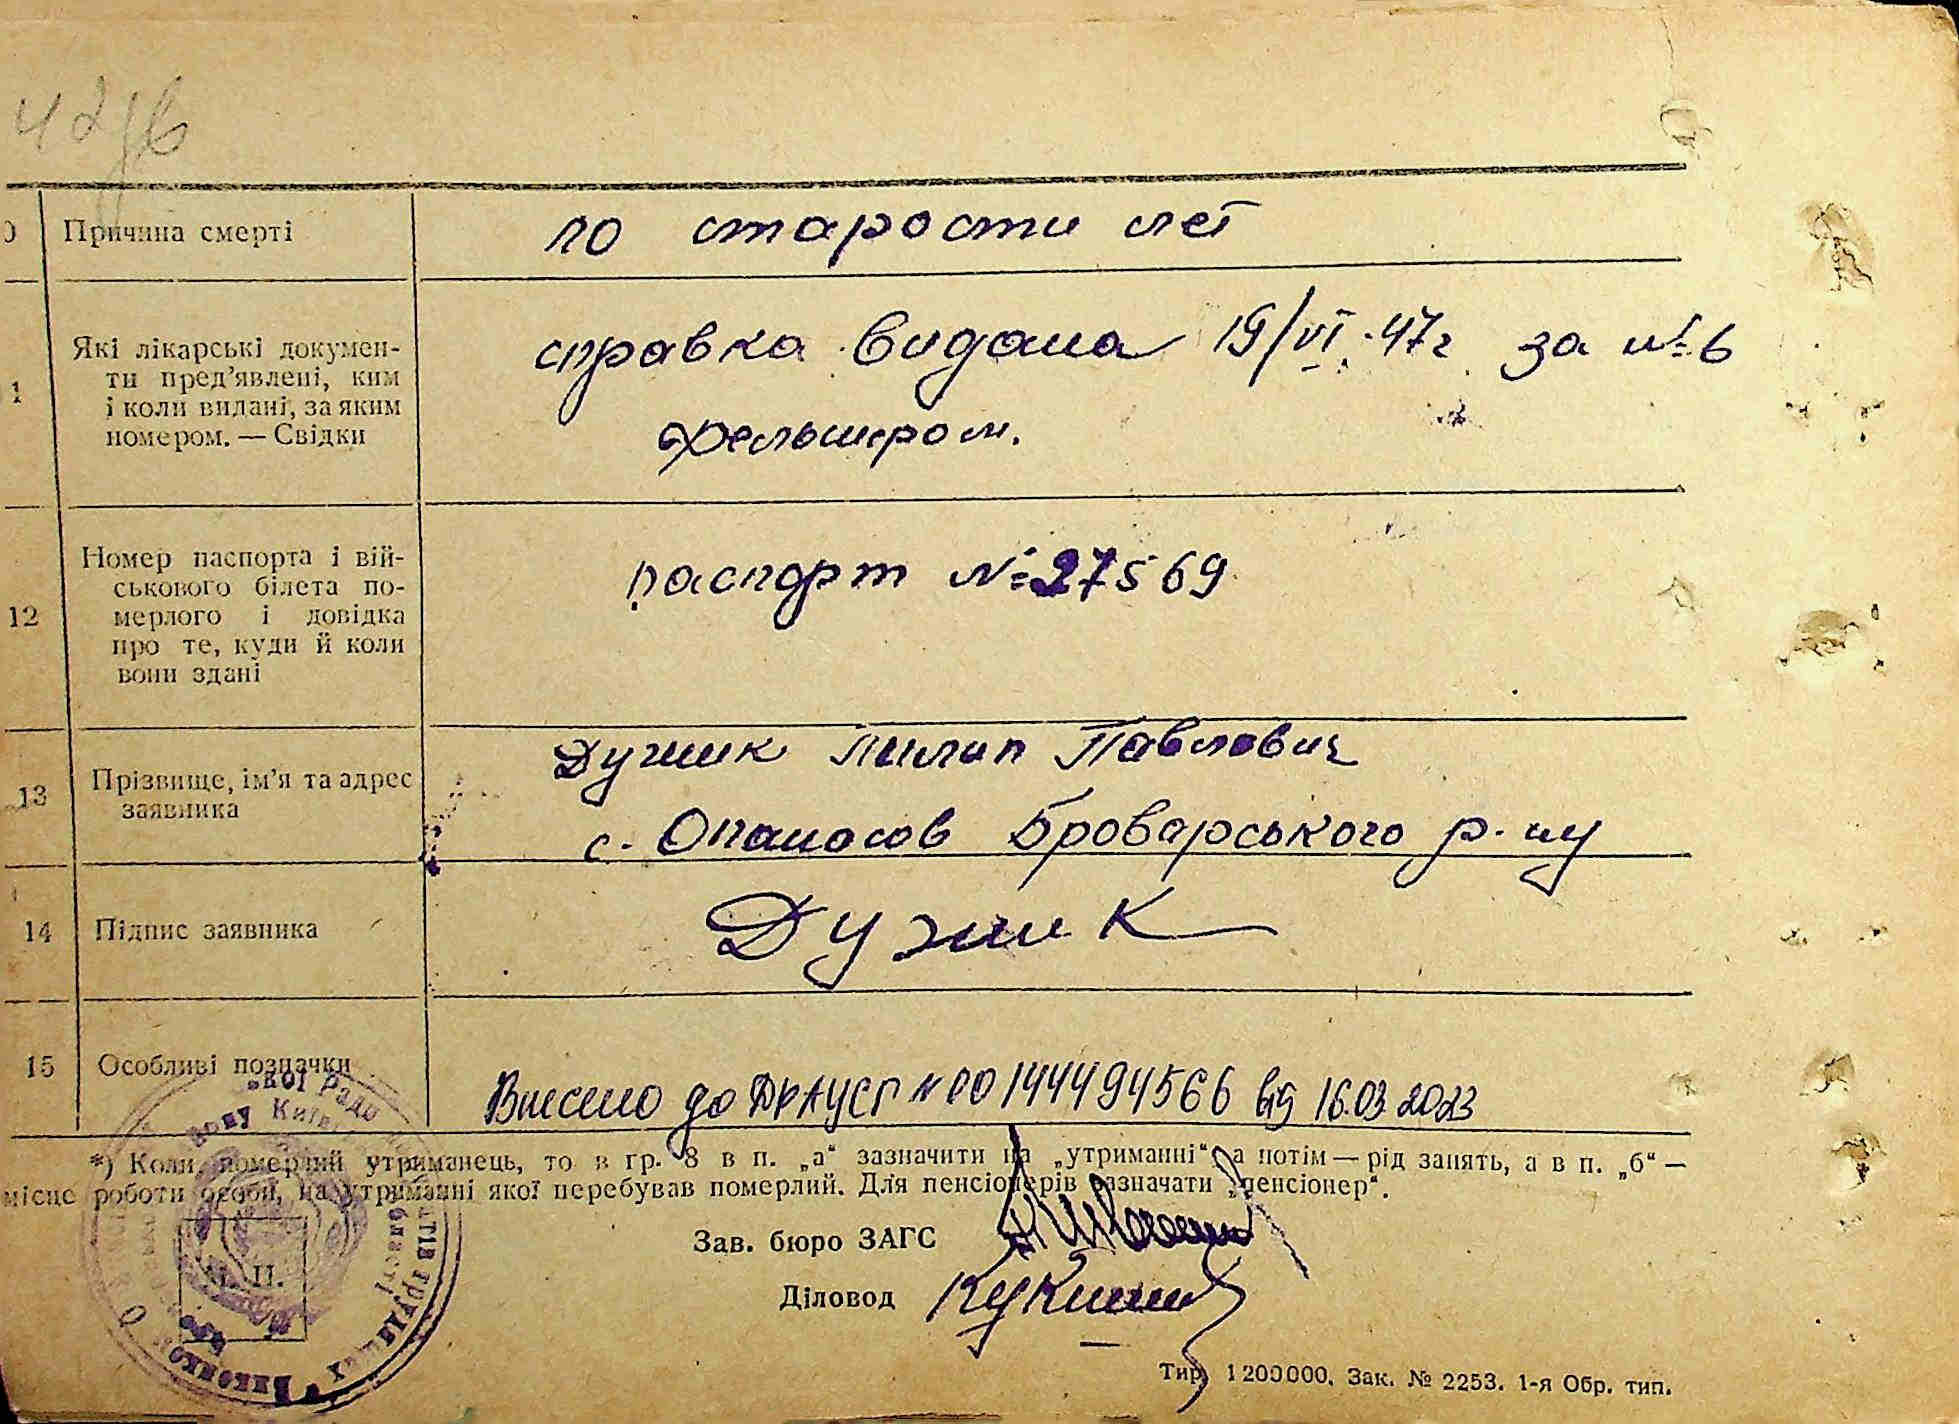 Причина смерті
по старости лет
1
Які лікарські докумен-
ти пред'явлені, ким
і коли видані, за яким
номером. — Свідки
справка видана 19/VI.47г за №6
фельшером.
12
Номер паспорта і вій-
ськового білета по-
мерлого і довідка
про те, куди й коли
вони здані
паспорт №27569
13
Прізвище, ім'я та адрес
заявника
Дужик Пилип Павлович
с. Опанасов Броварського р-ну
14
Підпис заявника
Дужик
15
Особливі позначки
Внесено до ДРАЦСГ №00144494566 від 16.03.2023
*) Коли померлий утриманець, то в гр. 8 в п. „а“ зазначити на „утриманні“, а потім — рід занять, а в п. „б“ —
місце роботи особи, на утриманні якої перебував померлий. Для пенсіонерів зазначати „пенсіонер“.
Зав. бюро ЗАГС
Діловод
М. П.
Тир. 1200000. Зак. № 2253. 1-я Обр. тип.